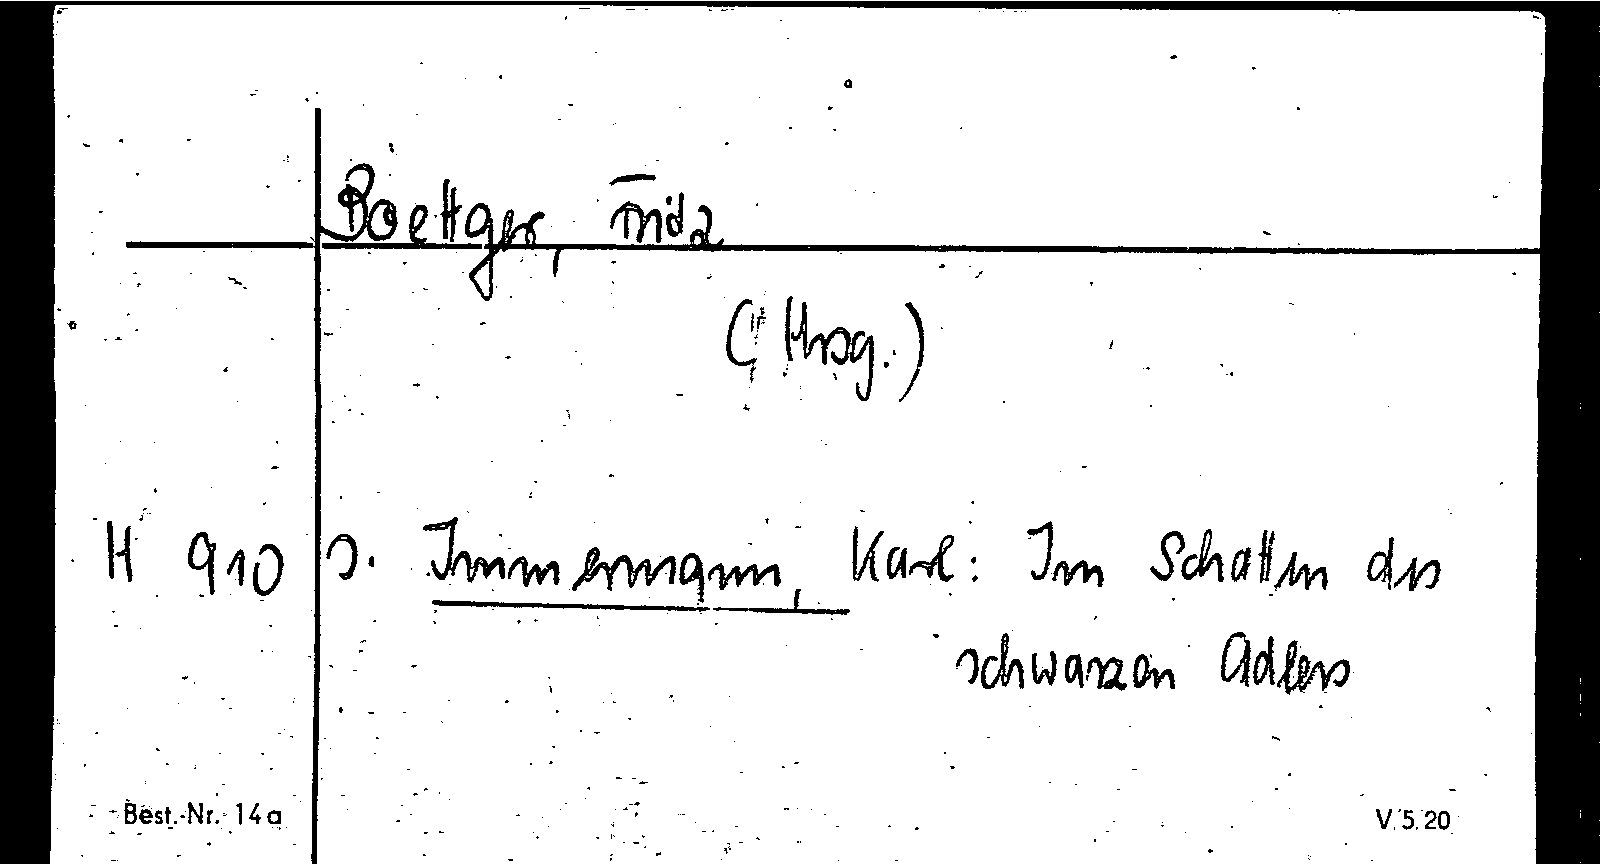 Boettger, Fritz
(Hrsg.)
H 910 s. Immermann, Karl: Im Schatten des
schwarzen Adlers
Best.-Nr. 14a V.5.20